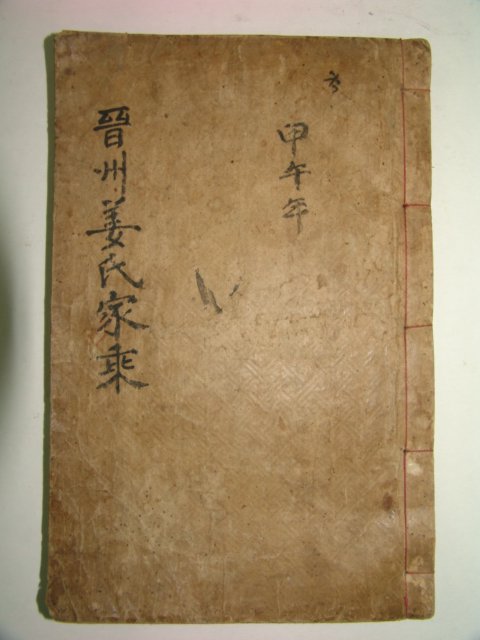 甲午年
晉州姜氏家乘